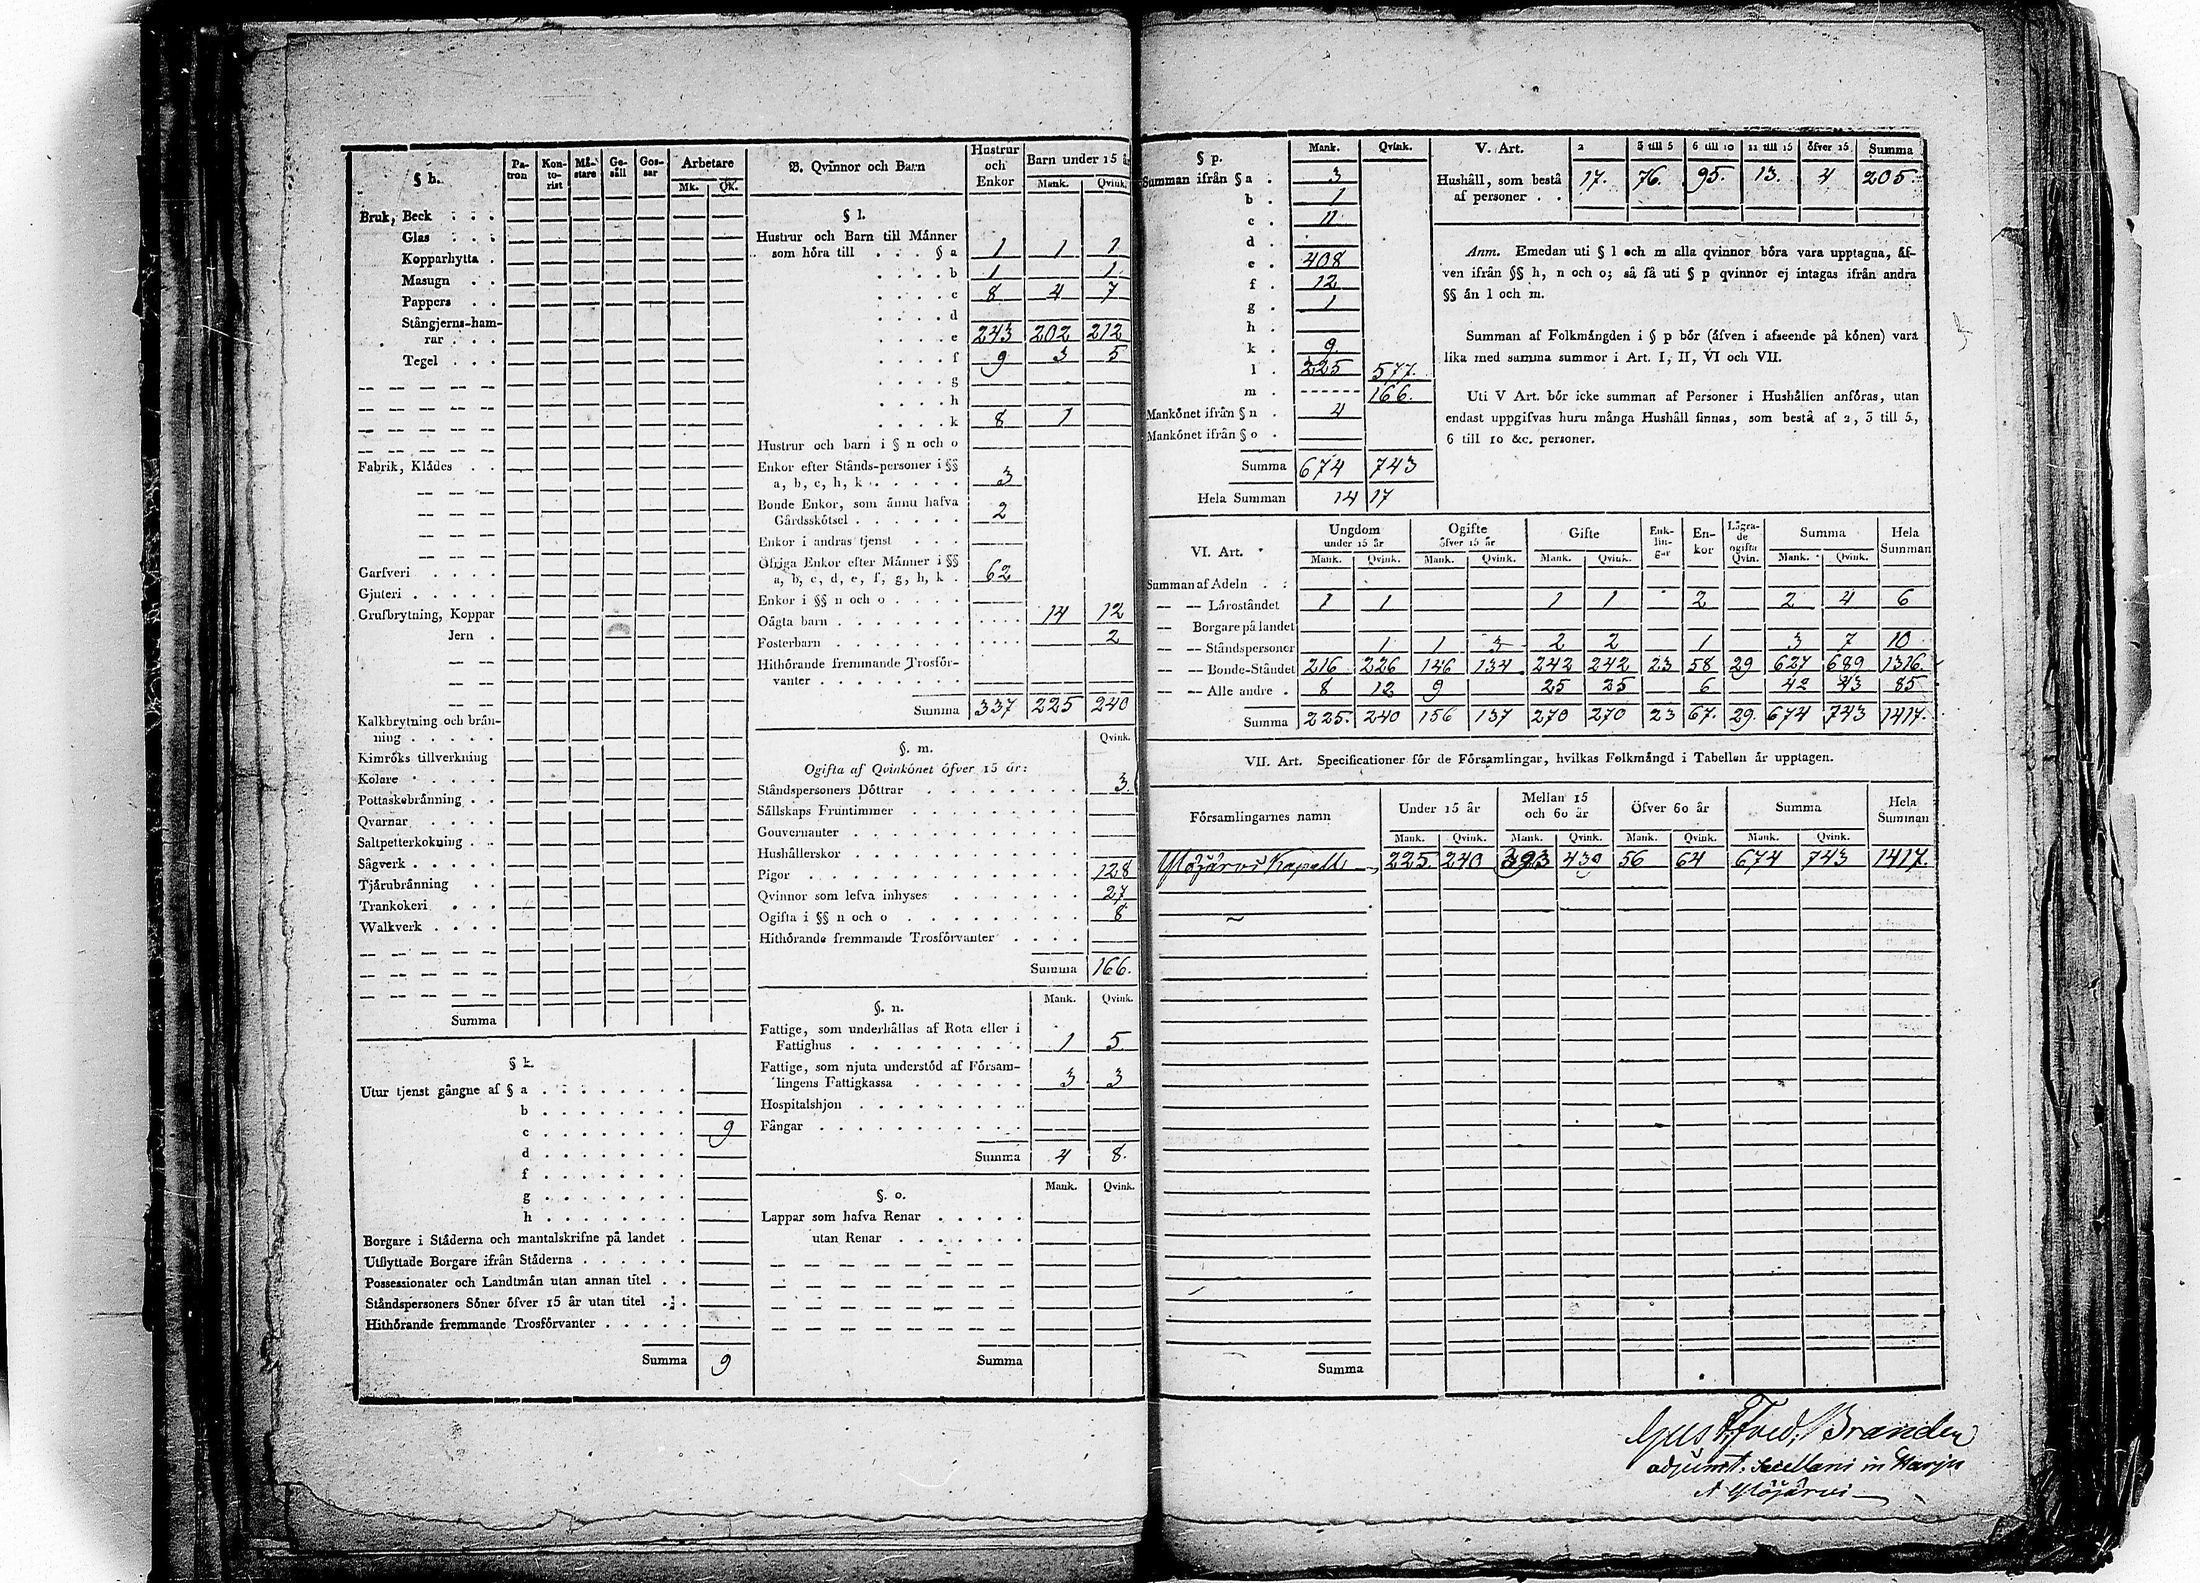 § h. Patron Kontorist Mästare Gesäll Gossar Arbetare
Mk. Qk.
Bruk, Beck . . .
Glas . . .
Kopparhytta .
Masugn . .
Pappers . .
Stångjerns-ham-
rar . . .
Tegel . . .
Fabrik, Klädes . .
Garfveri . . . .
Gjuteri . . . . .
Grufbrytning, Koppar
Jern .
Kalkbrytning och brän-
ning . . . . .
Kimröks tillverkning
Kolare . . . .
Pottaskebränning . .
Qvarnar . . . .
Saltpetterkokning . .
Sågverk . . . .
Tjärubränning . .
Trankokeri . . .
Walkverk . . . .
Summa
§ k.
Utur tjenst gångne af § a . . . . . . .
b . . . . . . .
c . . . . . . . 9
d . . . . . . .
f . . . . . . .
g . . . . . . .
h . . . . . . .
Borgare i Städerna och mantalskrifne på landet .
Utflyttade Borgare ifrån Städerna . . . . . .
Possessionater och Landtmän utan annan titel . .
Ståndspersoners Söner öfver 15 år utan titel . . .
Hithörande fremmande Trosförvanter . . . . .
Summa 9
B. Qvinnor och Barn Hustrur och Enkor Barn under 15 år
Mank. Qvink.
§ l.
Hustrur och Barn till Männer
som höra till . . . § a 1 1 1
. . . . b 1 1
. . . . c 8 4 7
. . . . d
. . . . e 243 202 212
. . . . f 9 3 5
. . . . g
. . . . h
. . . . k 8 1
Hustrur och barn i § n och o
Enkor efter Stånds-personer i §§
a, b, c, h, k . . . . . 3
Bonde Enkor, som ännu hafva
Gårdsskötsel . . . . . . 2
Enkor i andras tjenst . . .
Öfriga Enkor efter Männer i §§
a, b, c, d, e, f, g, h, k . 62
Enkor i §§ n och o . . . .
Oägta barn . . . . . . . 14 12
Fosterbarn . . . . . . . 2
Hithörande fremmande Trosför-
vanter . . . . . . . .
Summa 337 225 240
§. m. Qvink.
Ogifta af Qvinkönet öfver 15 år:
Ståndspersoners Döttrar . . . . . . . . 3.
Sällskaps Fruntimmer . . . . . . . . .
Gouvernanter . . . . . . . . . . . .
Hushållerskor . . . . . . . . . . . .
Pigor . . . . . . . . . . . . . . 128
Qvinnor som lefva inhyses . . . . . . . 27
Ogifta i §§ n och o . . . . . . . . . 8
Hithörande fremmande Trosförvanter . . . .
Summa 166.
§. n. Mank. Qvink.
Fattige, som underhållas af Rota eller i
Fattighus . . . . . . . . . 1 5
Fattige, som njuta understöd af Försam-
lingens Fattigkassa . . . . . . 3 3
Hospitalshjon . . . . . . . . . .
Fångar . . . . . . . . . . . .
Summa 4 8.
§. o. Mank. Qvink.
Lappar som hafva Renar . . . . .
utan Renar . . . . . . .
Summa
§ p. Mank. Qvink.
Summan ifrån § a . 3
b . 1
c . 11.
d .
e . 408
f . 12
g . 1
h .
k . 9.
l . 225 577.
m . 166.
Mankönet ifrån § n . 4
Mankönet ifrån § o .
Summa 674 743
Hela Summan 1417
V. Art. 2 3 till 5 6 till 10 11 till 15 öfver 15. Summa
Hushåll, som bestå
af personer . . 17. 76. 95. 13. 4 205.
Anm. Emedan uti § l och m alla qvinnor böra vara upptagna, äf-
ven ifrån §§ h, n och o; så få uti § p qvinnor ej intagas ifrån andra
§§ än l och m.
Summan af Folkmängden i § p bör (äfven i afseende på könen) vara
lika med samma summor i Art. I, II, VI och VII.
Uti V Art. bör icke summan af Personer i Hushållen anföras, utan
endast uppgifvas huru många Hushåll finnas, som bestå af 2, 3 till 5,
6 till 10 &c. personer.
VI. Art. Ungdom under 15 år Ogifte öfver 15 år Gifte Enklingar Enkor Lägrade ogifta Qvin. Summa Hela Summan
Mank. Qvink. Mank. Qvink. Mank. Qvink. Mank. Qvink.
Summan af Adeln . .
— — Läroståndet 1 1 1 1 2 2 4 6
— Borgare på landet
— — Ståndspersoner 1 1 3 2 2 1 3 7 10
— — Bonde-Ståndet 216 226 146 134 242 242 23 58 29 627 689 1316
— — Alle andre . 8 12 9 25 25 6 42 43 85
Summa 225. 240 156 137 270 270 23 67. 29. 674 743 1417.
VII. Art. Specificationer för de Församlingar, hvilkas Folkmängd i Tabellen är upptagen.
Församlingarnes namn Under 15 år Mellan 15 och 60 år Öfver 60 år Summa Hela Summan
Mank. Qvink. Mank. Qvink. Mank. Qvink. Mank. Qvink.
Ylöjärvi Kapell 225. 240 393 439 56 64 674 743 1417.
Summa
Gust. Fred. Brander
adjunct. Sacellani in Harju
& Ylöjärvi